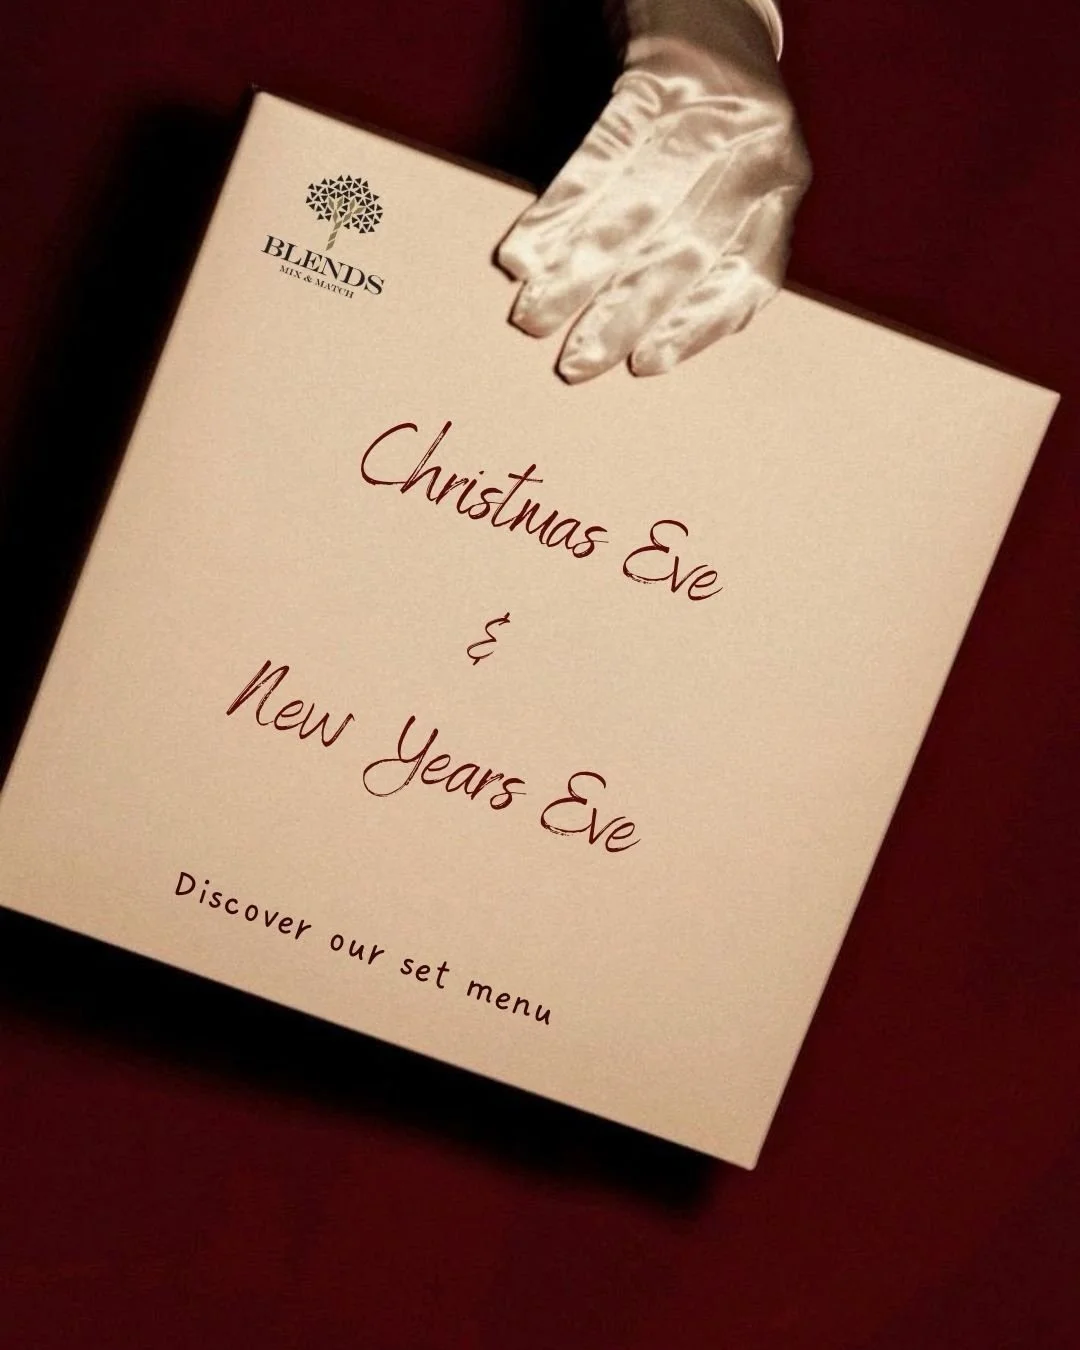 BLENDS
MIX & MATCH
Christmas Eve
&
New Years Eve
Discover our set menu